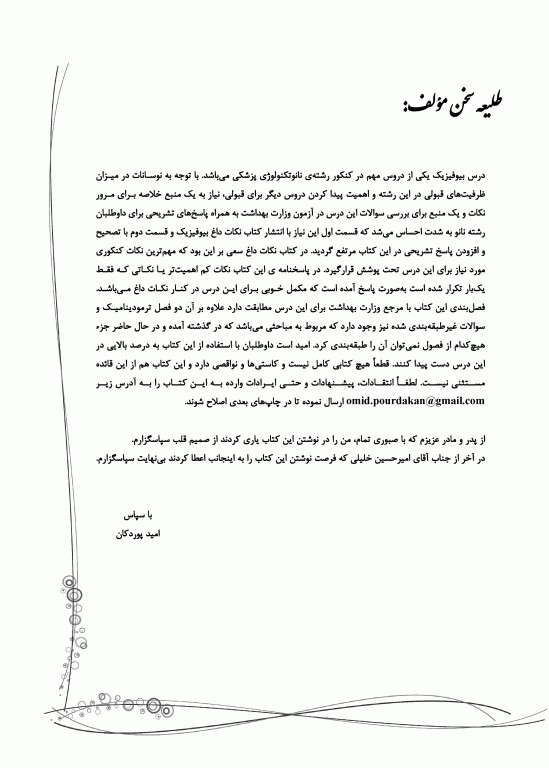 طلیعه سخن مؤلف:
درس بیوفیزیک یکی از دروس مهم در کنکور رشته‌ی نانوتکنولوژی پزشکی می‌باشد. با توجه به نوسانات در میزان
ظرفیت‌های قبولی در این رشته و اهمیت پیدا کردن دروس دیگر برای قبولی، نیاز به یک منبع خلاصه برای مرور
نکات و یک منبع برای بررسی سوالات این درس در آزمون وزارت بهداشت به همراه پاسخ‌های تشریحی برای داوطلبان
رشته نانو به شدت احساس می‌شد که قسمت اول این نیاز با انتشار کتاب نکات داغ بیوفیزیک و قسمت دوم با تصحیح
و افزودن پاسخ تشریحی در این کتاب مرتفع گردید. در کتاب نکات داغ سعی بر این بود که مهم‌ترین نکات کنکوری
مورد نیاز برای این درس تحت پوشش قرارگیرد. در پاسخنامه ی این کتاب نکات کم اهمیت‌تر یا نکاتی که فقط
یک‌بار تکرار شده است به‌صورت پاسخ آمده است که مکمل خوبی برای این درس در کنار نکات داغ می‌باشد.
فصل‌بندی این کتاب با مرجع وزارت بهداشت برای این درس مطابقت دارد علاوه بر آن دو فصل ترمودینامیک و
سوالات غیرطبقه‌بندی شده نیز وجود دارد که مربوط به مباحثی می‌باشد که در گذشته آمده و در حال حاضر جزء
هیچ‌کدام از فصول نمی‌توان آن را طبقه‌بندی کرد. امید است داوطلبان با استفاده از این کتاب به درصد بالایی در
این درس دست پیدا کنند. قطعاً هیچ کتابی کامل نیست و کاستی‌ها و نواقصی دارد و این کتاب هم از این قائده
مستثنی نیست. لطفاً انتقادات، پیشنهادات و حتی ایرادات وارده به این کتاب را به آدرس زیر
omid.pourdakan@gmail.com ارسال نموده تا در چاپ‌های بعدی اصلاح شوند.
از پدر و مادر عزیزم که با صبوری تمام، من را در نوشتن این کتاب یاری کردند از صمیم قلب سپاسگزارم.
در آخر از جناب آقای امیرحسین خلیلی که فرصت نوشتن این کتاب را به اینجانب اعطا کردند بی‌نهایت سپاسگزارم.
با سپاس
امید پوردکان